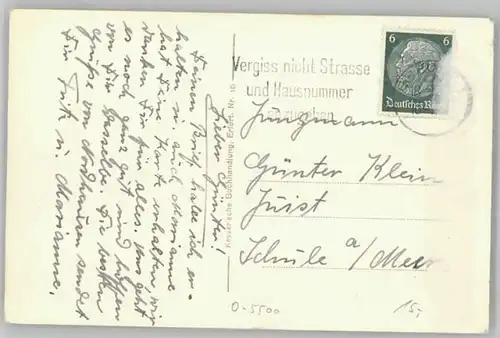 Lieber Günter!
Deinen Brief habe ich er-
halten u. auch Marianne
hat Deine Karte erhalten, wir
danken Dir für alles. Uns geht
es noch ganz gut und hoffen
von Dir dasselbe. Die besten
Grüße von Nordhausen sendet
Dir Fritz u. Marianne.
Keysersche Buchhandlung, Erfurt. Nr. 16
Vergiss nicht Strasse
und Hausnummer
anzugeben
6 6
Deutsches Reich
Jungmann
Günter Klein
Juist
Schule a/Meer
O-5500
15,-